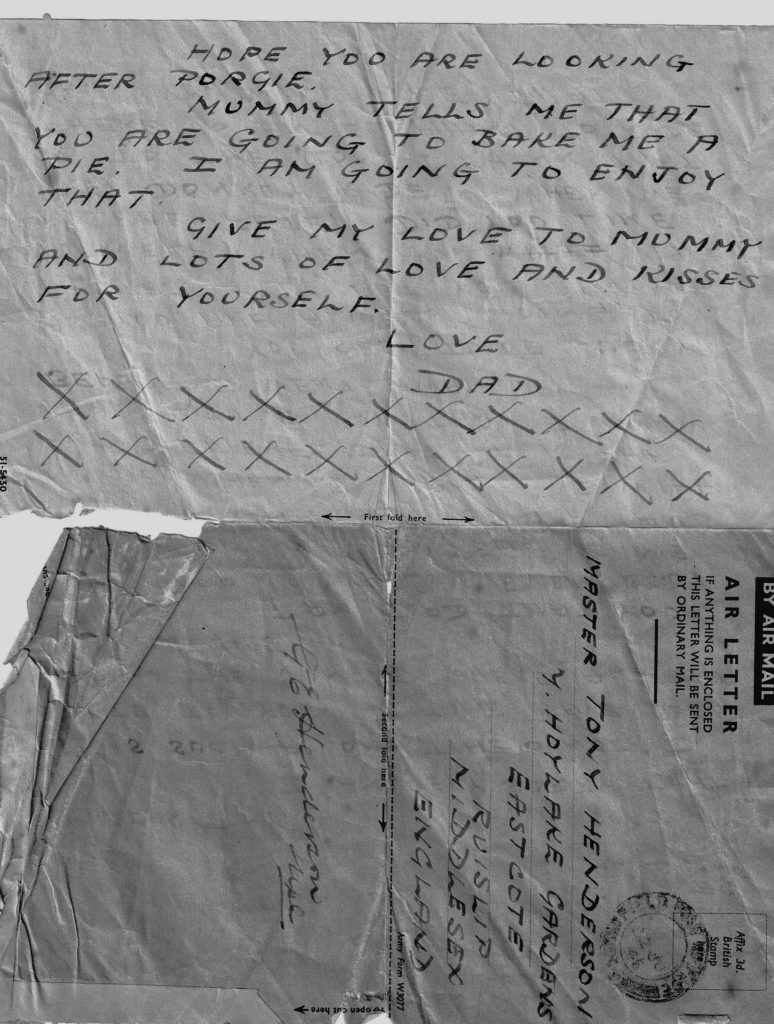 HOPE YOU ARE LOOKING
AFTER PORGIE.
MUMMY TELLS ME THAT
YOU ARE GOING TO BAKE ME A
PIE. I AM GOING TO ENJOY
THAT.
GIVE MY LOVE TO MUMMY
AND LOTS OF LOVE AND KISSES
FOR YOURSELF.
LOVE
DAD
X X X X X X X X X X X
X X X X X X X X X X X
51-5430
First fold here
BY AIR MAIL
AIR LETTER
IF ANYTHING IS ENCLOSED
THIS LETTER WILL BE SENT
BY ORDINARY MAIL.
Affix 3d.
British
Stamp
here
MASTER TONY HENDERSON
HOYLAKE GARDENS
EASTCOTE
RUISLIP
MIDDLESEX
ENGLAND
Army Form W3077
Second fold here
Henderson
To open cut here